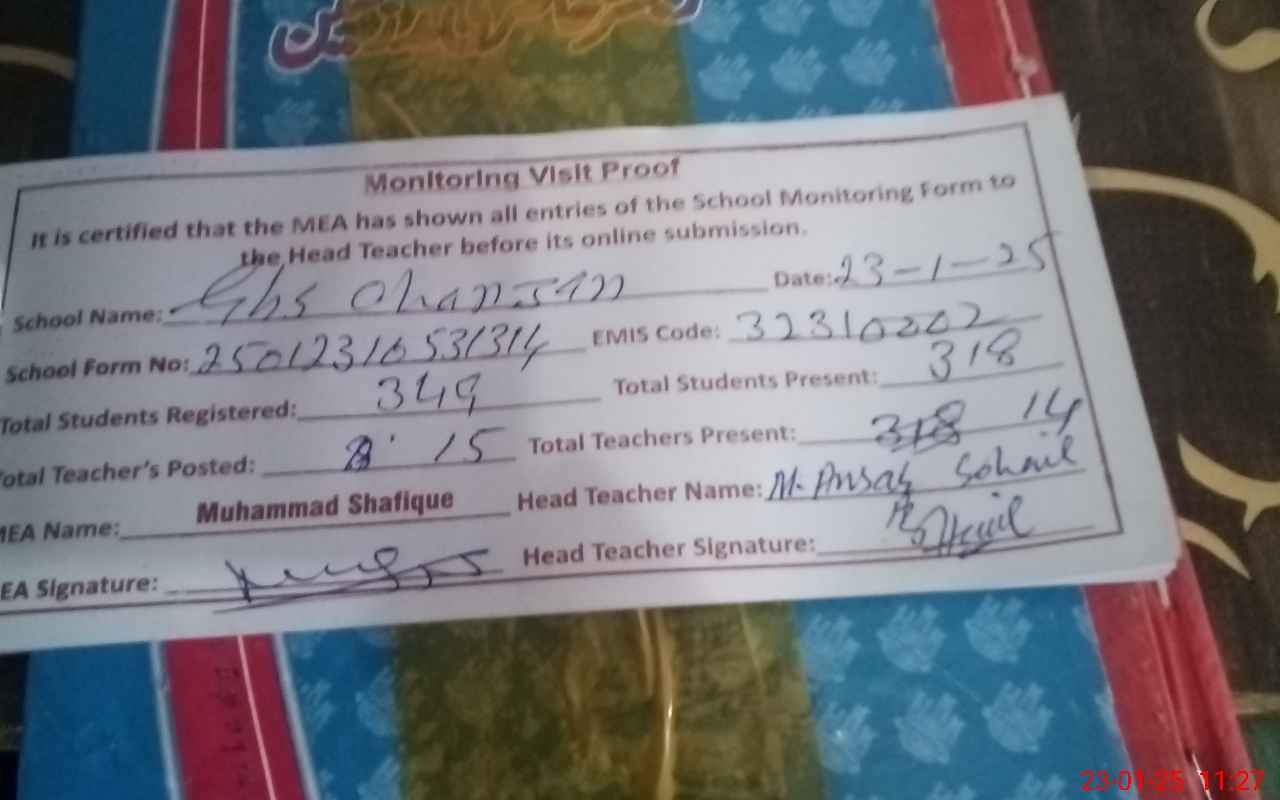 Monitoring Visit Proof
It is certified that the MEA has shown all entries of the School Monitoring Form to
the Head Teacher before its online submission.
School Name: Ghs Chansin Date: 23-1-25
School Form No: 25012310531314 EMIS Code: 32310002
Total Students Registered: 349 Total Students Present: 318
Total Teacher's Posted: 15 Total Teachers Present: 318 14
MEA Name: Muhammad Shafique Head Teacher Name: M. Ansar Sohail
EA Signature: Head Teacher Signature:
23-01-25 11:27